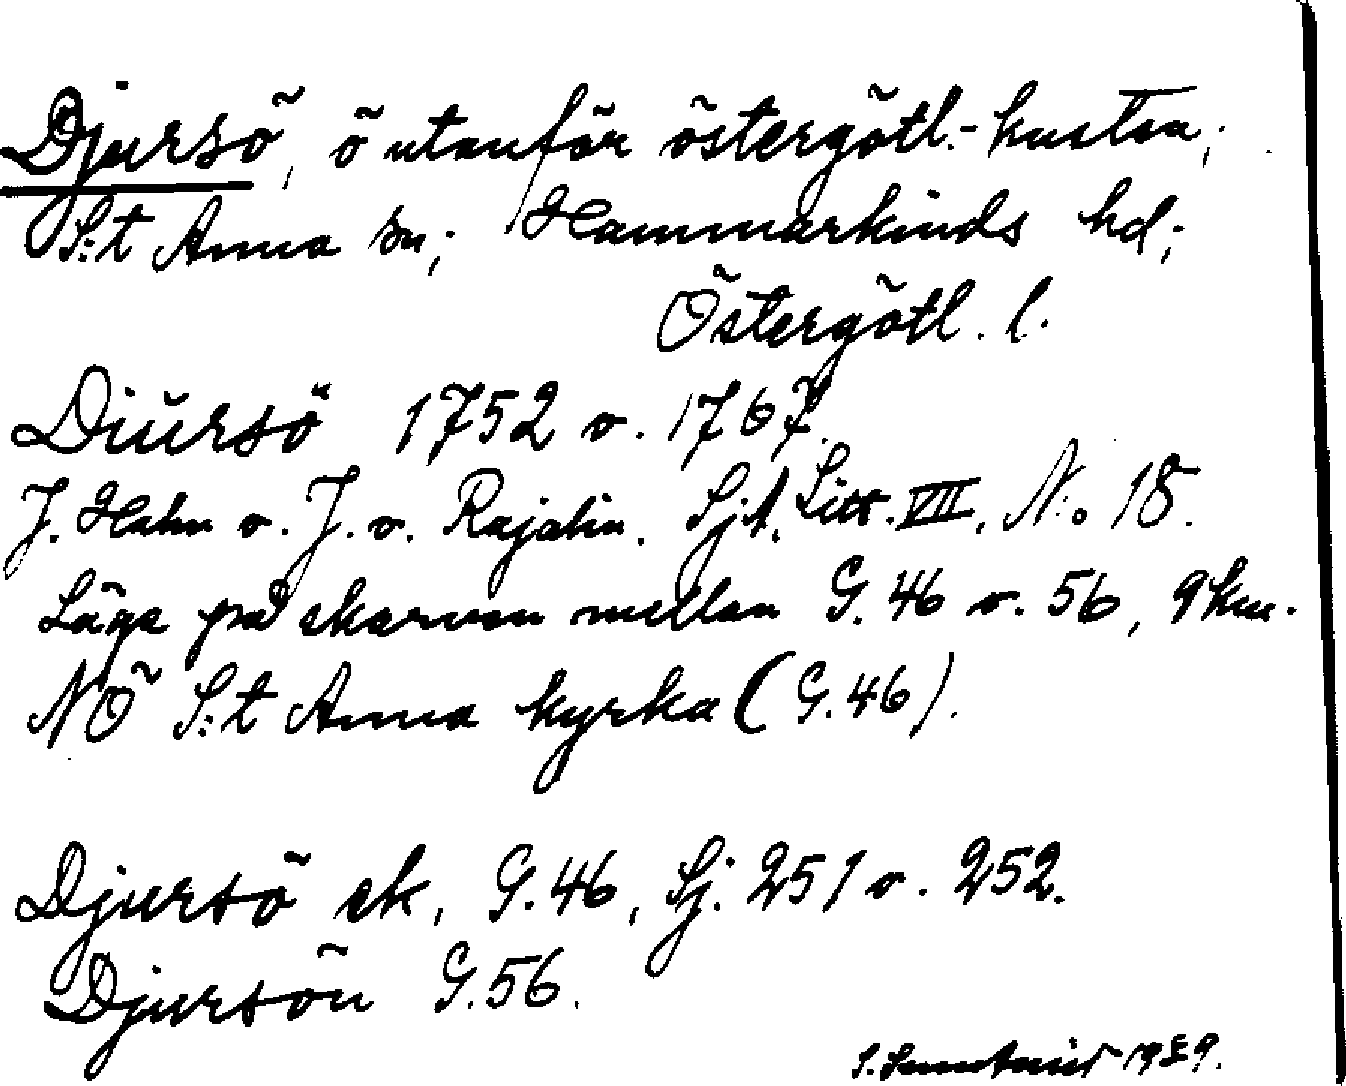 Djursö, ö utanför östergötl.-kusten;
S:t Anna sn; Hammarkinds hd;
Östergötl. l.
Diŭrsö 1752 o. 1767.
J. Hahn o. J. v. Rajalin. SjA. Litt. VII, No 18.
Läge på skarven mellan G.46 o. 56, 9 km.
NÖ S:t Anna kyrka (G.46).
Djursö ek, G.46, Sj. 251 o. 252.
Djursön G.56.
S.